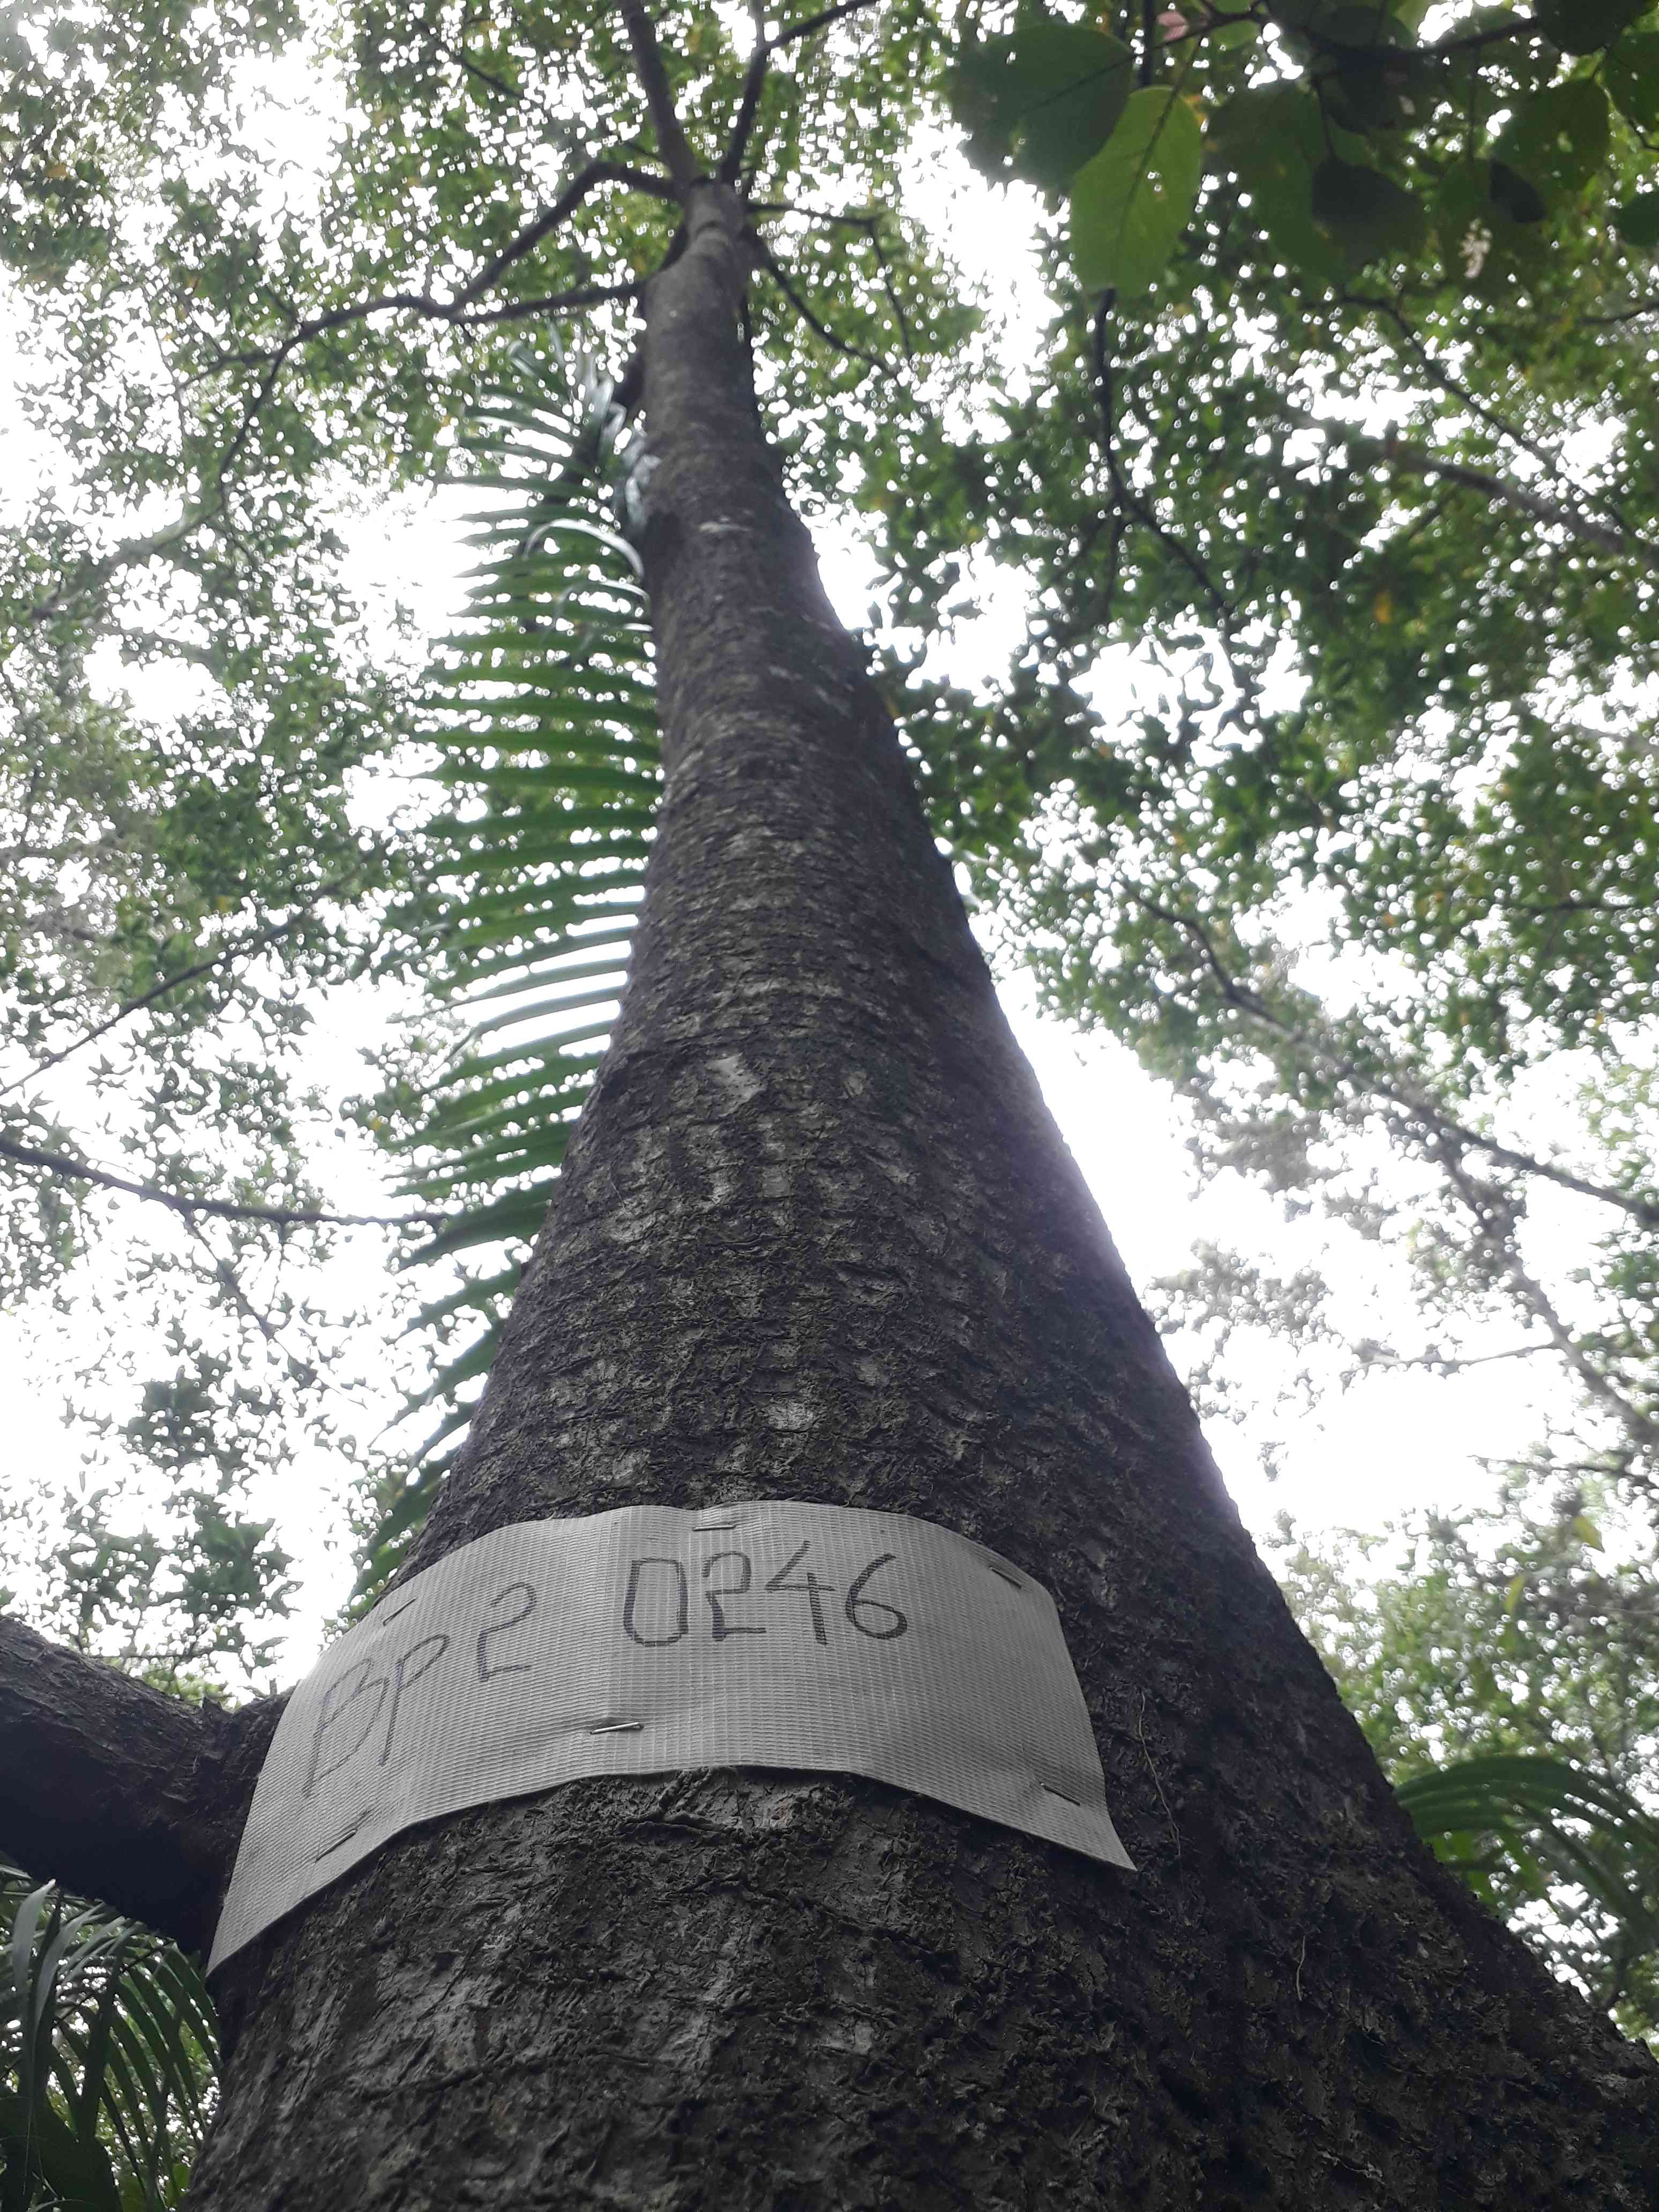 BP 2 0246